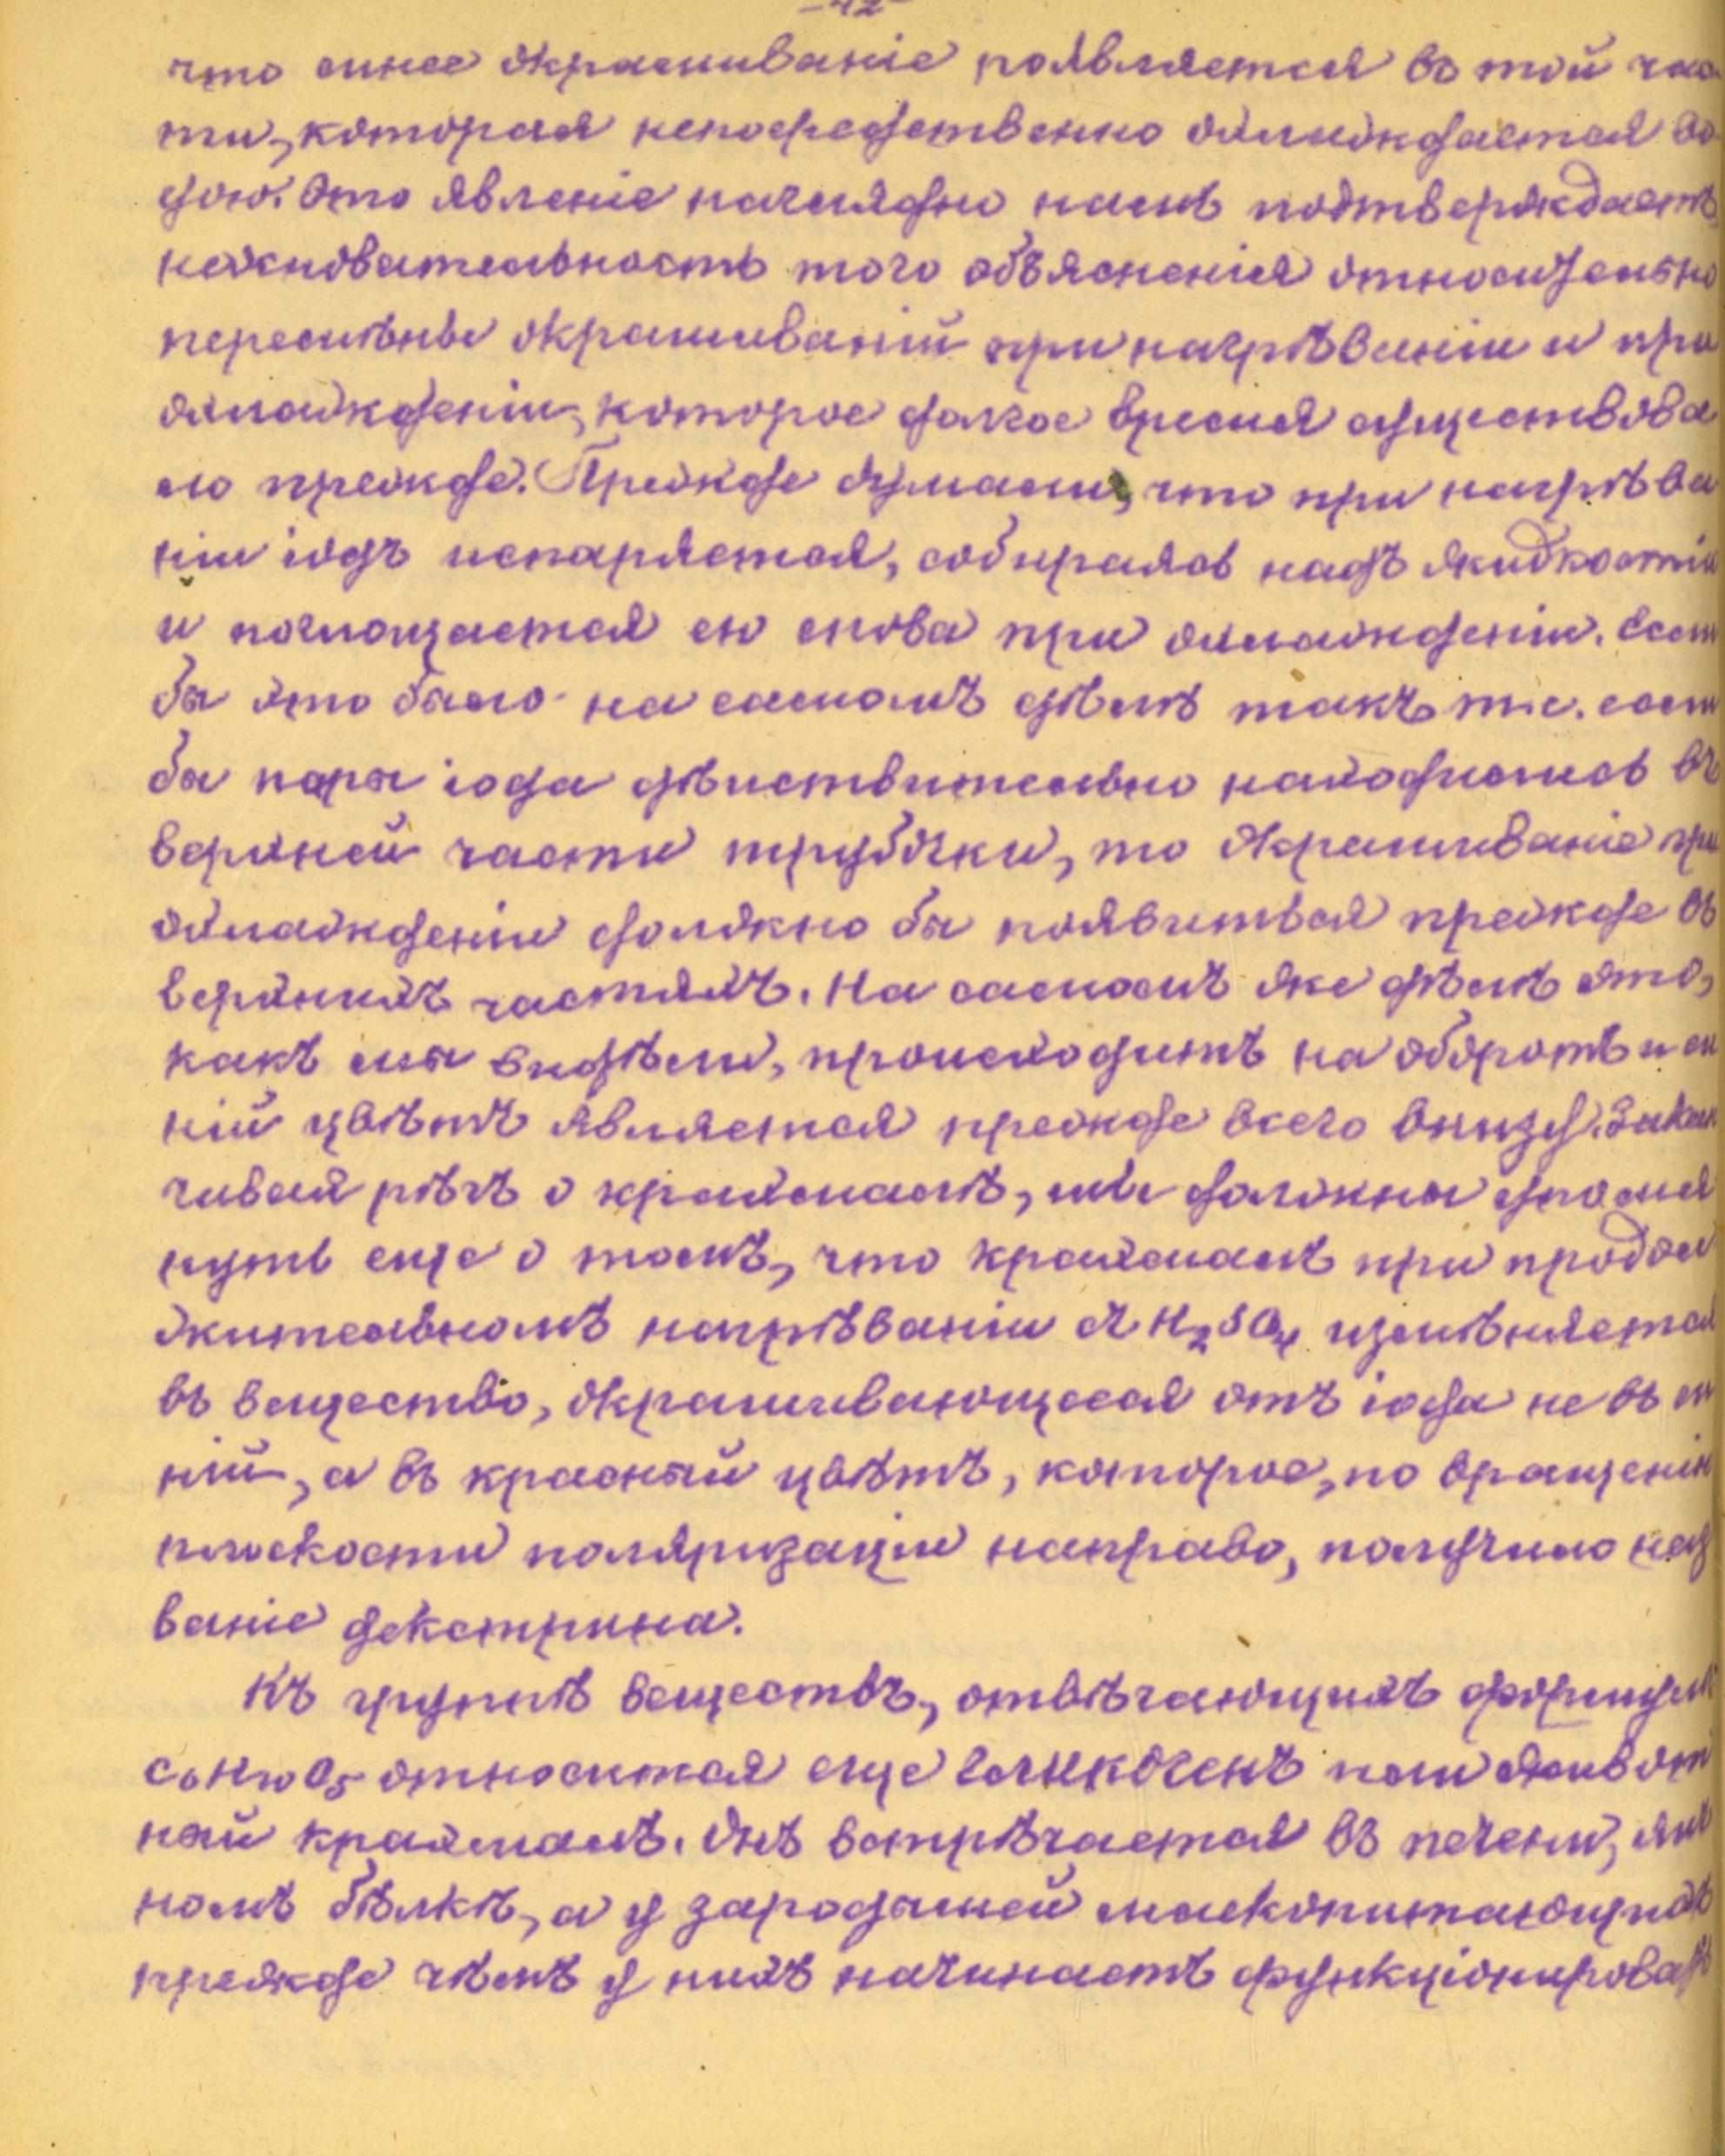 -42-
что синее окрашиваніе появляется въ той час
ти, которая непосредственно охлаждается во
дою. Это явленіе наглядно намъ подтверждаетъ
неосновательность того объясненія относительно
перемѣны окрашиваній при нагрѣваніи и при
охлажденіи, которое долгое время существова
ло прежде. Прежде думали, что при нагрѣва
ніи іодъ испаряется, собираясь надъ жидкостью
и поглощается ею снова при охлажденіи. Если
бы это было на самомъ дѣлѣ такъ т.е. если
бы пары іода дѣйствительно находились въ
верхней части трубочки, то окрашиваніе при
охлажденіи должно бы появиться прежде въ
верхнихъ частяхъ. На самомъ же дѣлѣ это,
какъ мы видѣли, происходитъ на оборотъ и си
ній цвѣтъ является прежде всего внизу. Закан
чивая рѣчь о крахмалѣ, мы должны упомя
нуть еще о томъ, что крахмалъ при продол
жительномъ нагрѣваніи съ H₂SO₄ измѣняется
въ вещество, окрашивающееся отъ іода не въ си
ній, а въ красный цвѣтъ, которое, по вращенію
плоскости поляризаціи направо, получило наз
ваніе декстрина.
Къ группѣ веществъ, отвѣчающихъ формулѣ
C₆H₁₀O₅ относится еще гликогенъ или живот
ный крахмалъ. Онъ встрѣчается въ печени, яич
номъ бѣлкѣ, а у зародышей млекопитающихъ
прежде чѣмъ у нихъ начинаетъ функціонировать